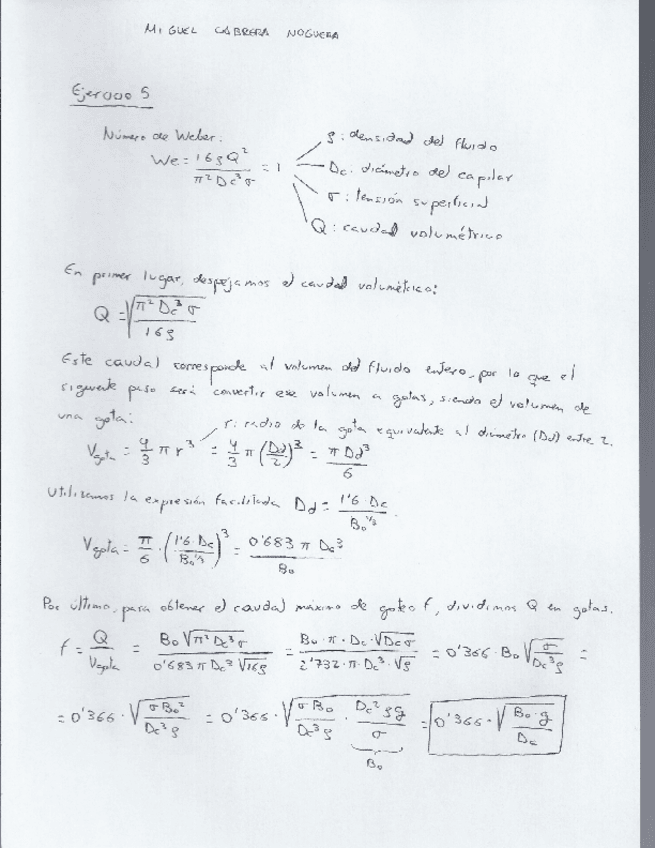 MIGUEL CABRERA NOGUERA
Ejercicio 5
Número de Weber:
We = 16 ρ Q² / π² Dc³ σ = 1
ρ: densidad del fluido
Dc: diámetro del capilar
σ: tensión superficial
Q: caudal volumétrico
En primer lugar, despejamos el caudal volumétrico:
Q = √(π² Dc³ σ / 16 ρ)
Este caudal corresponde al volumen del fluido entero, por lo que el
siguiente paso será convertir ese volumen a gotas, siendo el volumen de
una gota:
r: radio de la gota equivalente al diámetro (Dd) entre 2.
Vgota = 4/3 π r³ = 4/3 π (Dd/2)³ = π Dd³ / 6
Utilizamos la expresión facilitada Dd = 1'6 Dc / Bo^1/3.
Vgota = π/6 · (1'6 · Dc / Bo^1/3)³ = 0'683 π Dc³ / Bo
Por último, para obtener el caudal máximo de goteo f, dividimos Q en gotas.
f = Q / Vgota = Bo √(π² Dc³ σ) / 0'683 π Dc³ √(16ρ) = Bo · π · Dc · √(Dc σ) / 2'732 · π · Dc³ · √ρ = 0'366 · Bo √(σ / Dc³ ρ) =
= 0'366 · √(σ Bo² / Dc³ ρ) = 0'366 · √(σ Bo / Dc³ ρ · Dc² ρ g / σ) = 0'366 · √(Bo · g / Dc)
Bo